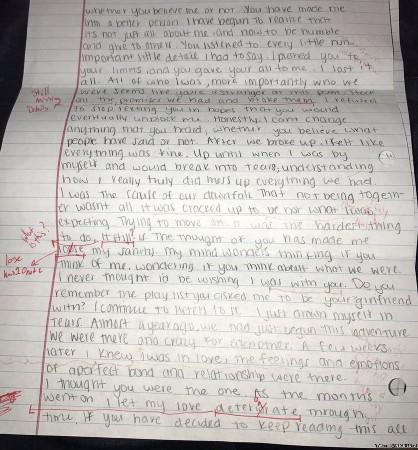 whether you believe me or not. You have made me
into a better person. I have begun to realize that
its not just all about me and now to be humble
and give to others. You listened to every little
important little detail I had to say. I pushed you to
your limits and you gave your all to me. I lost it
all. All of who I was, more importantly who we
were seems like you're a stranger at this point.
all the promises we had and broke them. I refused
to stop texting you in hopes that you would
eventually unblock me. Honestly I can't change
anything that you heard, whether you believe what
people have said or not. After we broke up I felt like
everything was fine. Up until when I was by
myself and would break into tears, understanding
how I really truly did mess up everything we had.
I was the cause of our downfall. That not being togeth-
er wasn't all it was cracked up to be nor what I was
expecting. Trying to move on was the hardest thing
to do, The thought of you has made me
lose my sanity. My mind wonders thinking if you
think of me, wondering if you think about what we were.
I never thought I'd be wishing I was with you. Do you
remember the playlist you asked me to be your girlfriend
with? I continue to listen to it. I just drown myself in
tears. Almost a year ago, we had just began this adventure
we were there and crazy for eachother. A few weeks
later I knew I was in love. The feelings and emotions
of a perfect bond and relationship were there.
I thought you were the one. As the months
went on I let my love deteriorate through
time. If you have decided to keep reading this all
Still
lose